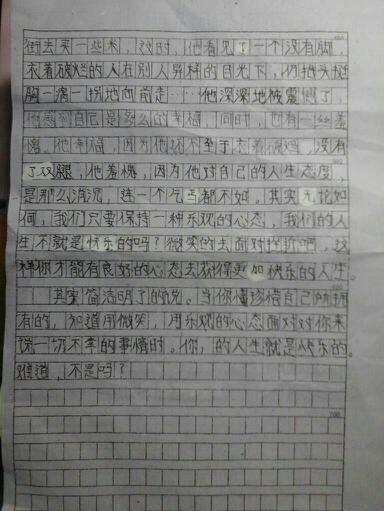 街去买一些米,这时,他看见了一个没有脚,
衣着破烂的人在别人异样的目光下,仍抬头挺
胸一瘸一拐地向前走……他深深地被震憾了,
他感到自己是多么的幸福,同时,也有一丝羞
愧。他幸福,因为他还不至于衣着破烂,没有
了双腿,他羞愧,因为他对自己的人生态度,
是那么消沉,连一个乞丐都不如。其实无论如
何,我们只要保持一种乐观的心态,我们的人
生不就是快乐的吗?微笑的去面对挫折吧,这
样你才能有良好的心态去获得更加快乐的人生
其实简洁明了的说。当你懂珍惜自己所拥
有的,知道用微笑,用乐观的心态面对对你来
说一切不幸的事情时。你,的人生就是快乐的。
难道,不是吗?